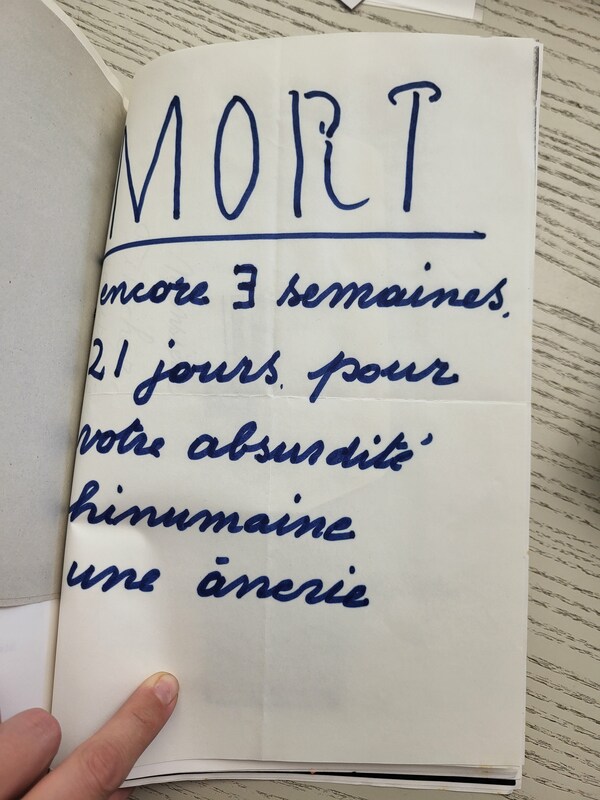 MORT
encore 3 semaines.
21 jours. pour
votre absurdité
hinumaine
une ânerie